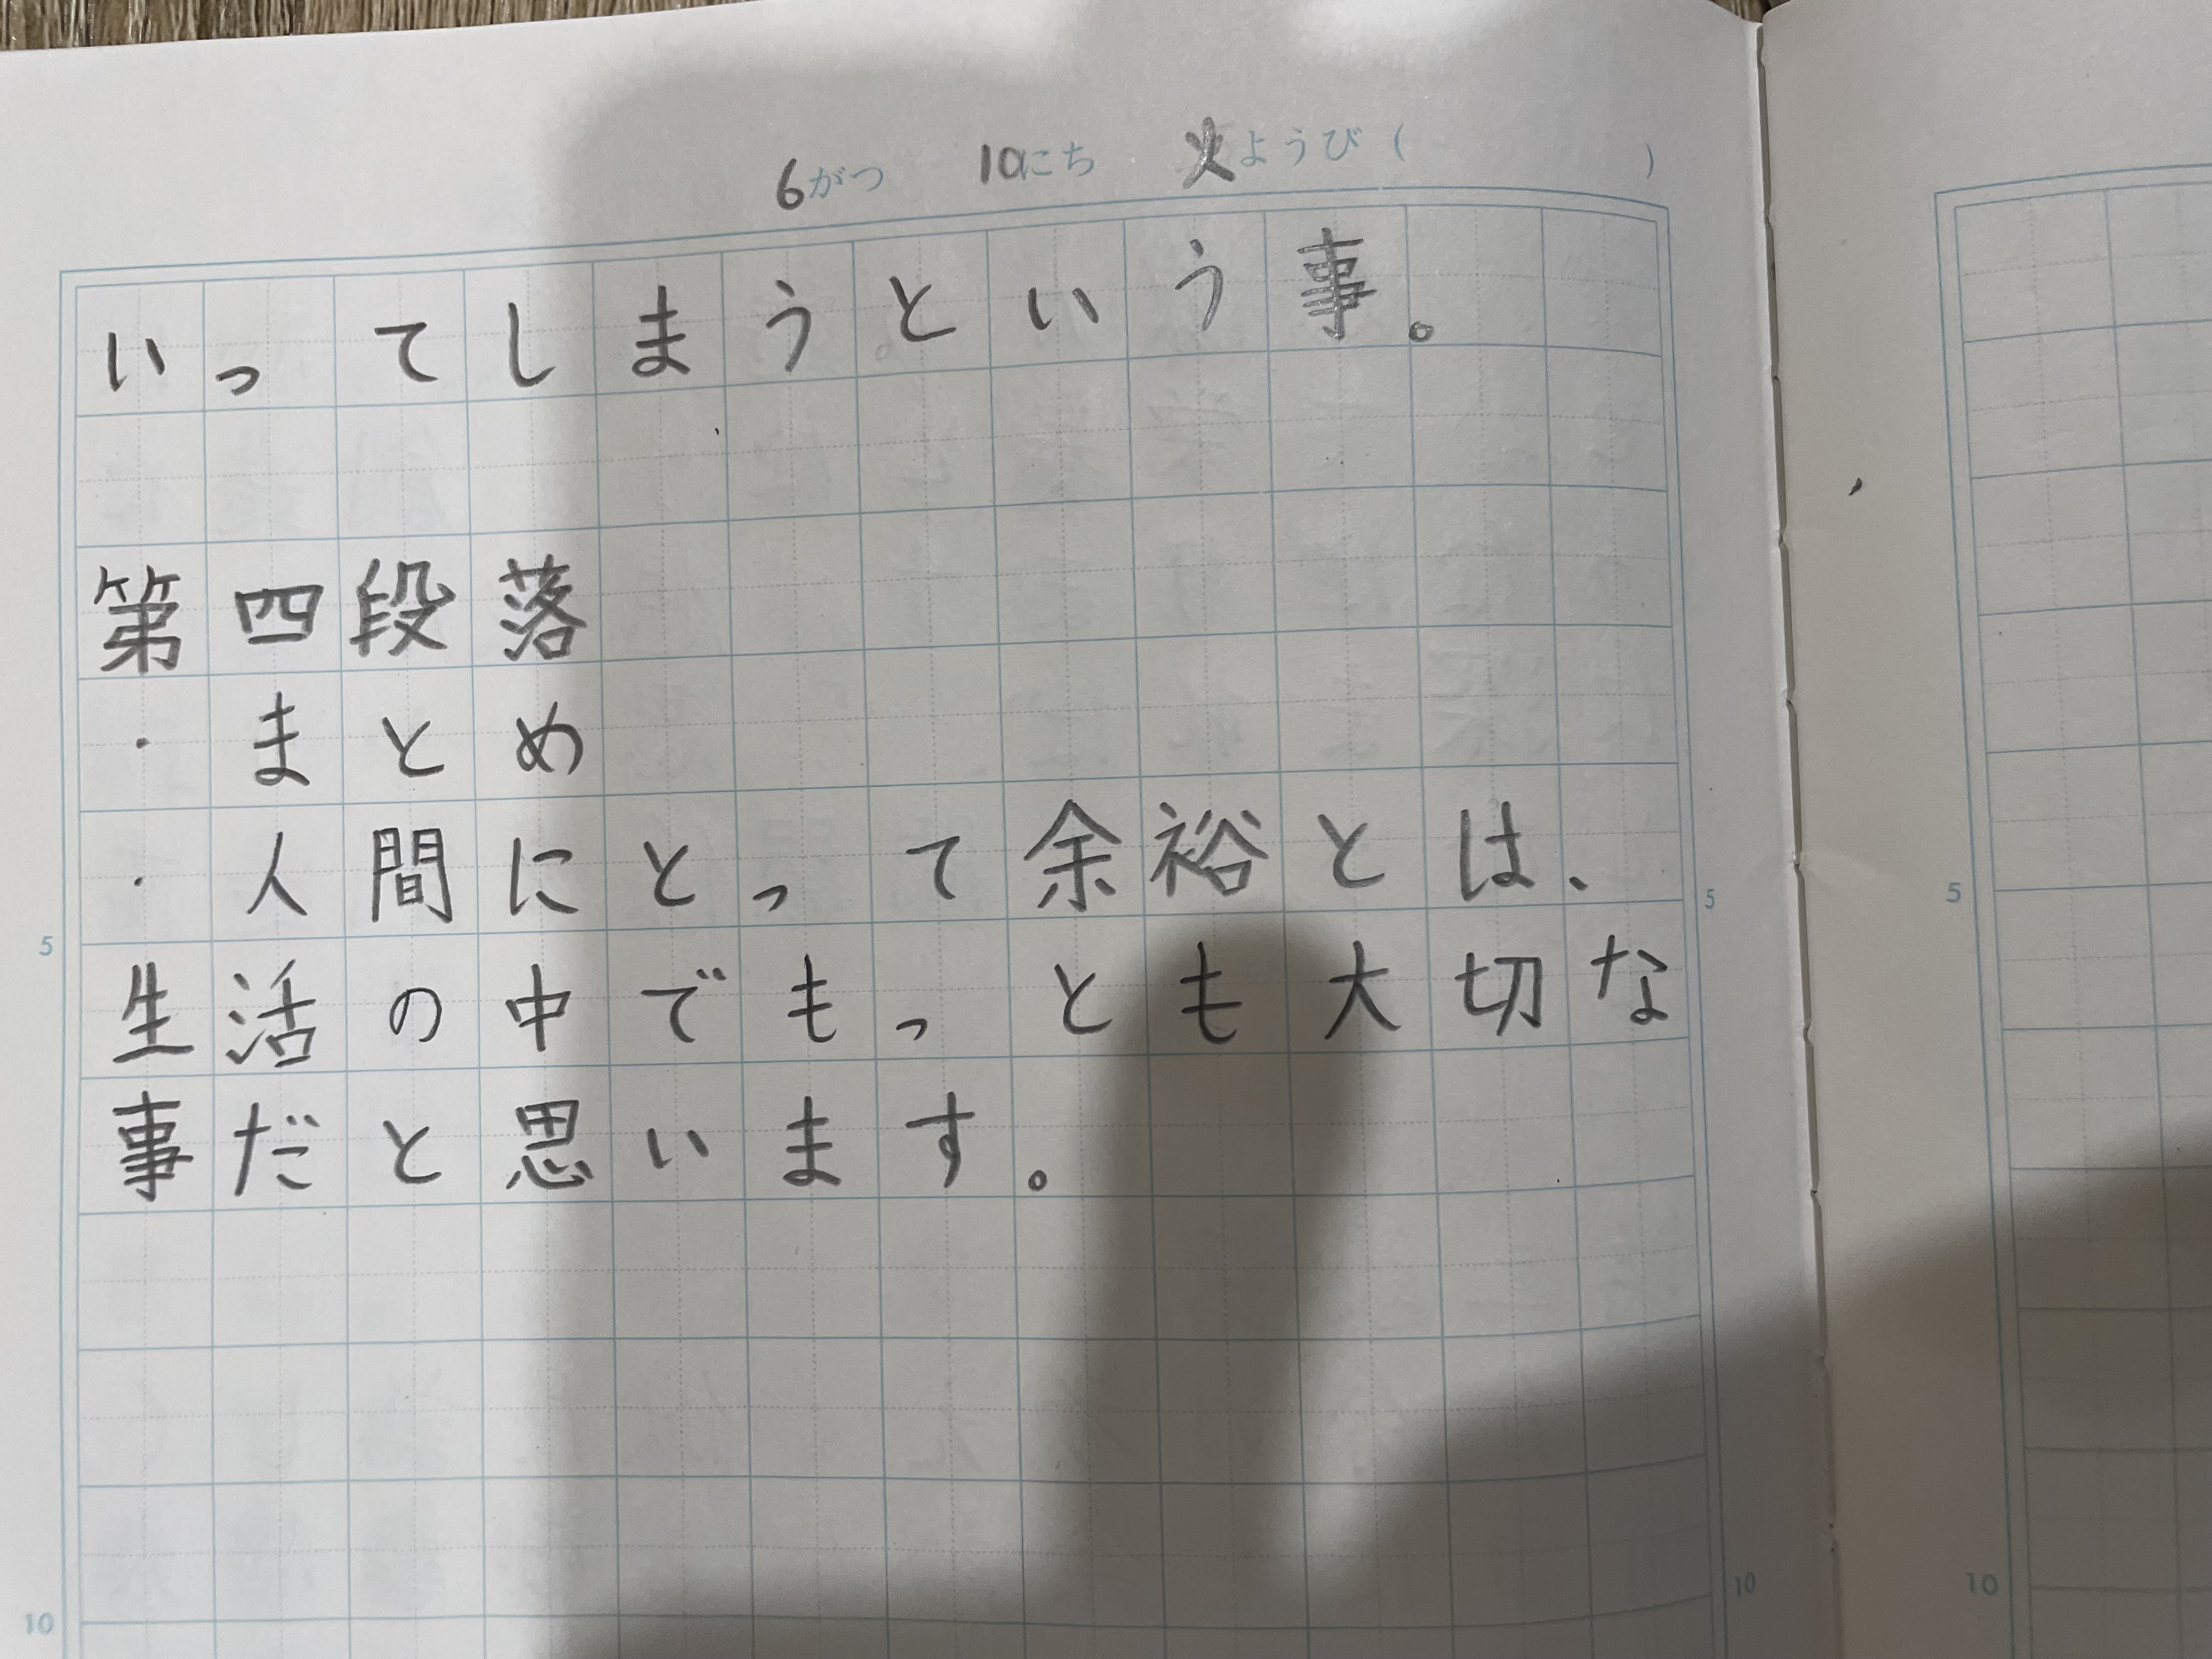 6がつ 10にち 火ようび( )
いってしまうという事。
第四段落
・まとめ
・人間にとって余裕とは、
5
生活の中でもっとも大切な
事だと思います。
10
5
10
5
10